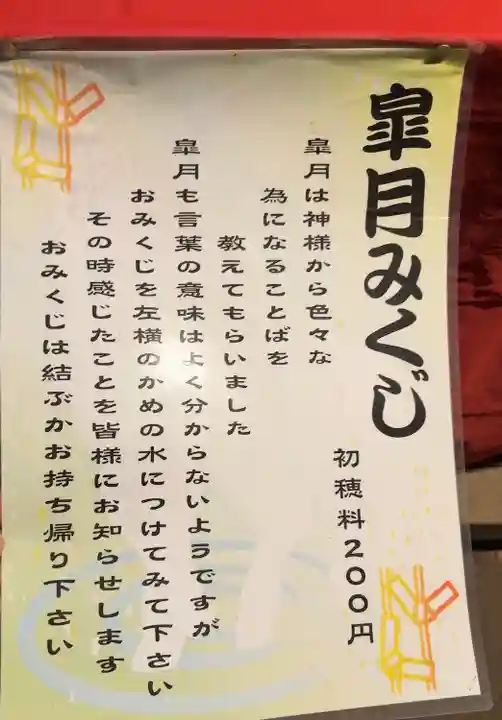 皐月みくじ
初穂料200円
皐月は神様から色々な
為になることばを
教えてもらいました
皐月も言葉の意味はよく分からないようですが
おみくじを左横のかめの水につけてみて下さい
その時感じたことを皆様にお知らせします
おみくじは結ぶかお持ち帰り下さい